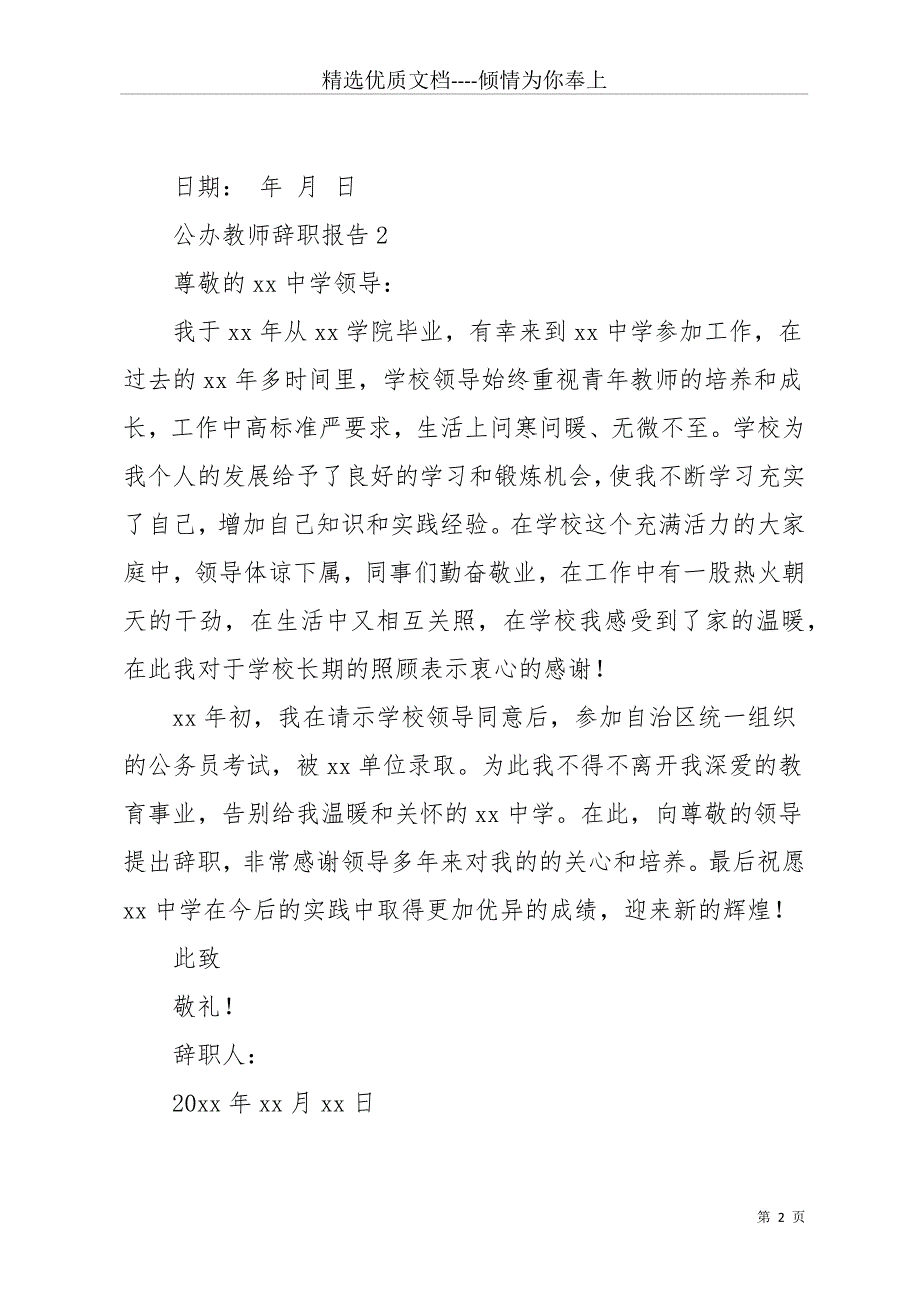 精选优质文档----倾情为你奉上
日期： 年 月 日
公办教师辞职报告2
尊敬的xx中学领导：
我于xx年从xx学院毕业，有幸来到xx中学参加工作，在
过去的xx年多时间里，学校领导始终重视青年教师的培养和成
长，工作中高标准严要求，生活上问寒问暖、无微不至。学校为
我个人的发展给予了良好的学习和锻炼机会，使我不断学习充实
了自己，增加自己知识和实践经验。在学校这个充满活力的大家
庭中，领导体谅下属，同事们勤奋敬业，在工作中有一股热火朝
天的干劲，在生活中又相互关照，在学校我感受到了家的温暖，
在此我对于学校长期的照顾表示衷心的感谢！
xx年初，我在请示学校领导同意后，参加自治区统一组织
的公务员考试，被xx单位录取。为此我不得不离开我深爱的教
育事业，告别给我温暖和关怀的xx中学。在此，向尊敬的领导
提出辞职，非常感谢领导多年来对我的的关心和培养。最后祝愿
xx中学在今后的实践中取得更加优异的成绩，迎来新的辉煌！
此致
敬礼！
辞职人：
20xx年xx月xx日
第 2 页